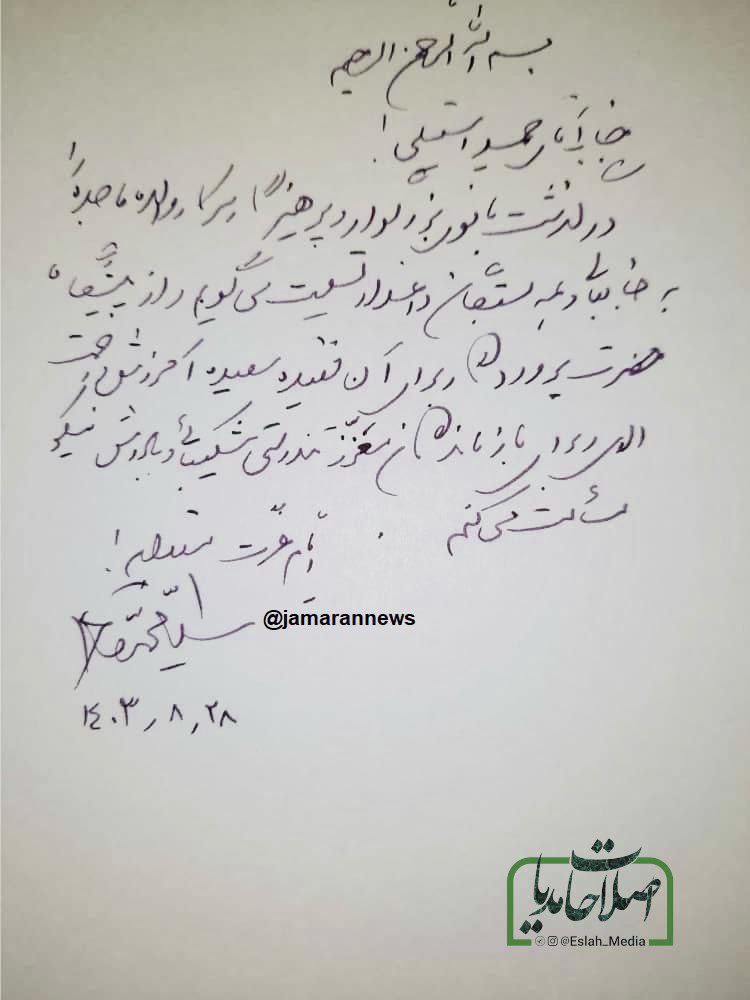 بسم الله الرحمن الرحیم
جناب آقای حمید استیلی!
درگذشت بانوی بزرگوار و پرهیزگار سرکار والده ماجده را
به جنابعالی و همه بستگان داغدار تسلیت می‌گویم و از پیشگاه
حضرت پروردگار برای آن فقیده سعیده آمرزش و رحمت
الهی و برای بازماندگان معزز تندرستی شکیبائی و پاداش نیکو
مسألت می‌کنم.
ایام عزت مستدام!
سید محمد خاتمی
@jamarannews
۱۴۰۳٫۸٫۲۸
اصلاحات مدیا
@Eslah_Media